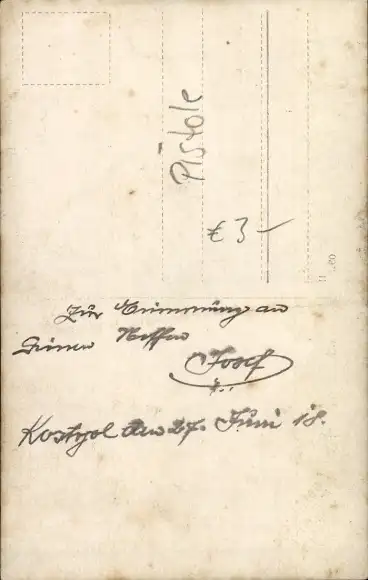 Pistole
€ 3,-
Zur Erinnerung an
Deinen Neffen
Josef
Kostopol den 27. Juni 18.